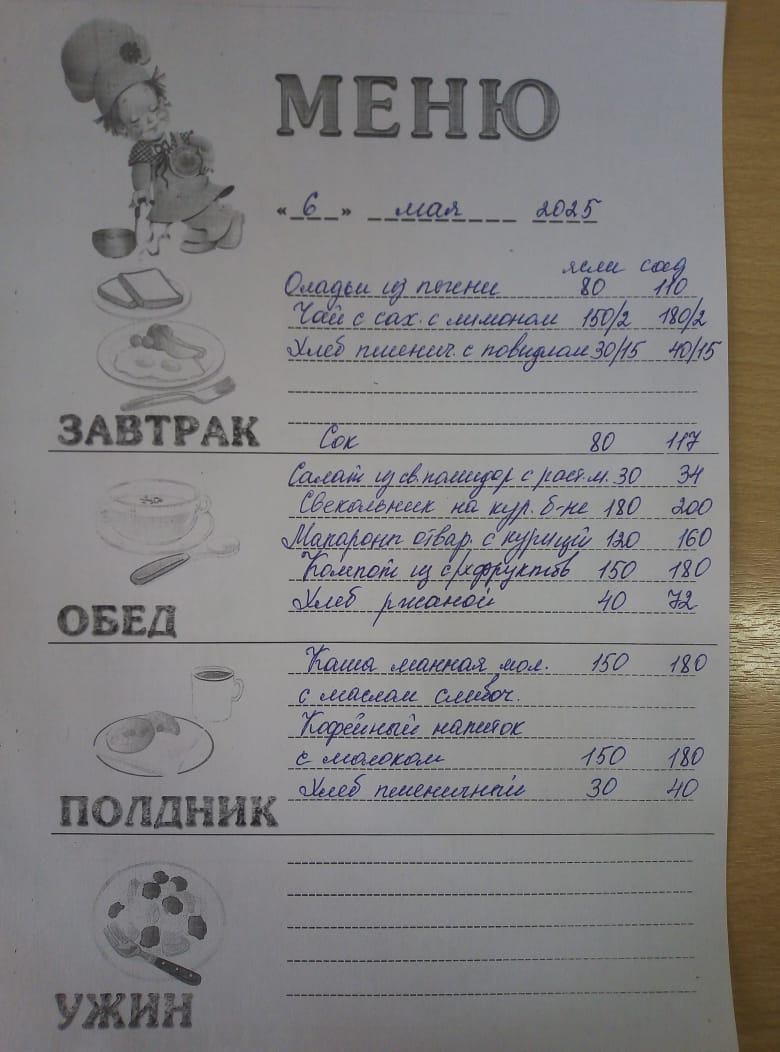 МЕНЮ
« 6 » мая 2025
ясли сад
Оладьи из печени 80 110
Чай с сах. с лимоном 150/2 180/2
Хлеб пшенич. с повидлом 30/15 40/15
ЗАВТРАК
Сок 80 117
Салат из св. помидор с раст. м. 30 34
Свекольник на кур. б-не 180 200
Макароны отвар. с курицей 120 160
Компот из с/хфруктов 150 180
Хлеб ржаной 40 72
ОБЕД
Каша манная мол. 150 180
с маслом сливоч.
Кофейный напиток
с молоком 150 180
Хлеб пшеничный 30 40
ПОЛДНИК
УЖИН